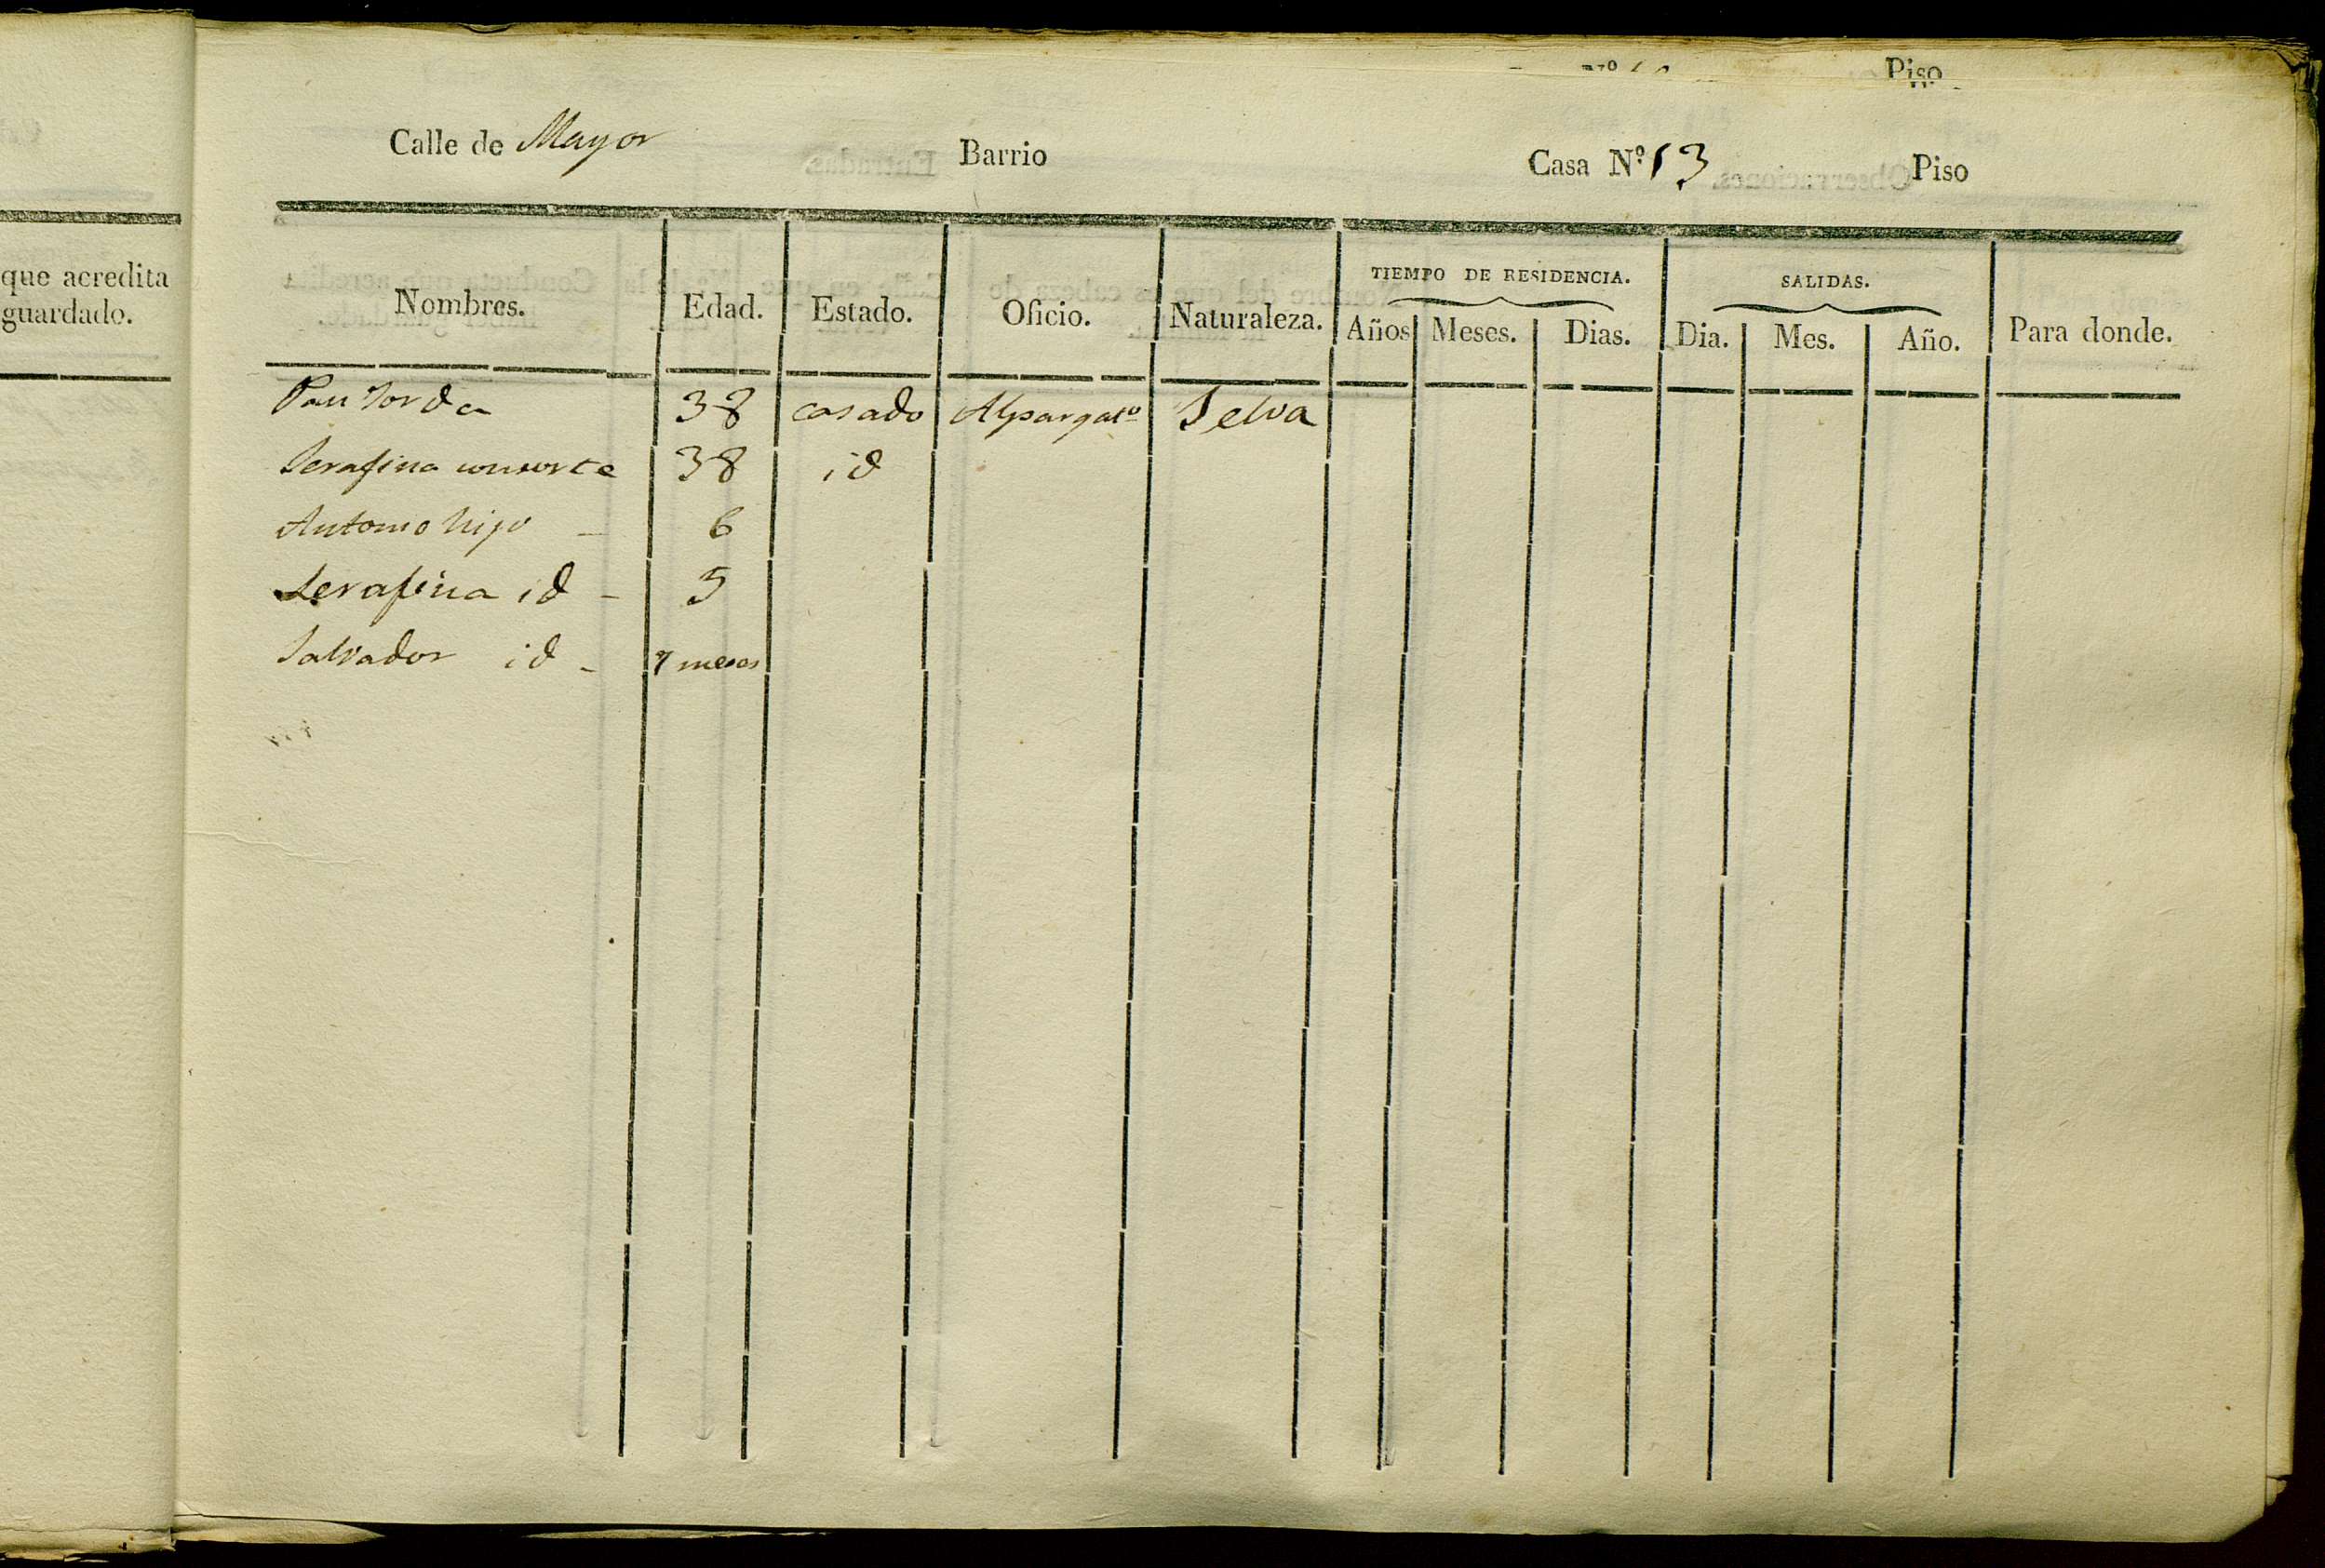 Piso
Calle de Mayor Barrio Casa Nº 13 Piso
que acredita
guardado.
Nombres. Edad. Estado. Oficio. Naturaleza. TIEMPO DE RESIDENCIA. SALIDAS. Para donde.
Años Meses. Dias. Dia. Mes. Año.
Pau Jorda 38 casado Alpargatº Selva
Serafina consorte 38 id
Antonio hijo - 6
Serafina id - 5
Salvador id - 7 meses